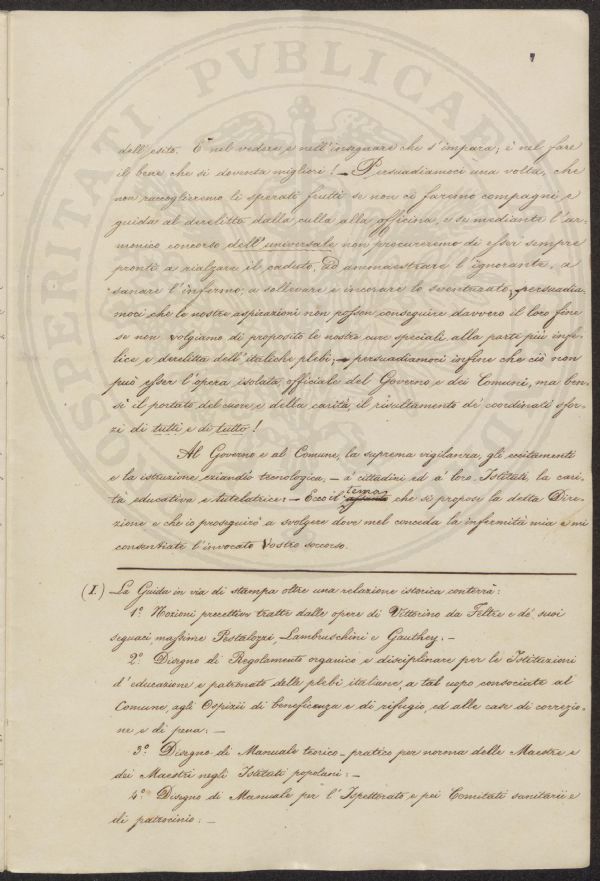 dell'esito. È nel vedere e nell'insegnare che s'impara; è nel fare
il bene che si doventa migliori! — Persuadiamoci una volta, che
non raccoglieremo li sperati frutti se non ci faremo compagni e
guida al derelitto dalla culla alla officina, e se mediante l'ar-
monico concorso dell'universale non procureremo di esser sempre
pronti a rialzare il caduto, ad ammaestrare l'ignorante, a
sanare l'infermo, a sollevare e incorare lo sventurato; persuadia-
moci che le nostre aspirazioni non posson conseguire davvero il loro fine
se non volgiamo di proposito le nostre cure speciali alla parte più infe-
lice e derelitta dell'italiche plebi; — persuadiamoci infine che ciò non
può esser l'opera isolata, officiale del Governo e dei Comuni, ma ben-
sì il portato del cuore, e della carità, il risultamento de' coordinati sfor-
zi di tutti e di tutto!
Al Governo e al Comune, la suprema vigilanza, gli eccitamenti
e la istruzione eziandio tecnologica; — a' cittadini ed a' loro Istituti, la cari-
tà educativa e tutelatrice: — Ecco il tema che si propose la detta Dire-
zione e che io proseguirò a svolgere dove mel conceda la infermità mia e mi
consentiate l'invocato Vostro soccorso.
(I.) La Guida in via di stampa oltre una relazione istorica conterrà:
1.° Nozioni precettive tratte dalle opere di Vittorino da Feltre e de' suoi
seguaci, massime Pestalozzi, Lambruschini e Gauthey: —
2.° Disegno di Regolamento organico e disciplinare per le Istituzioni
d'educazione e patronato delle plebi italiane, a tal uopo consociate al
Comune, agli Ospizii di beneficenza e di rifugio, ed alle case di correzio-
ne e di pena: —
3.° Disegno di Manuale teorico-pratico per norma delle Maestre e
dei Maestri negli Istituti popolani: —
4.° Disegno di Manuale per l'Ispettorato e pei Comitati sanitarii e
di patrocinio: —
PVBLICAE
POSTERITATI